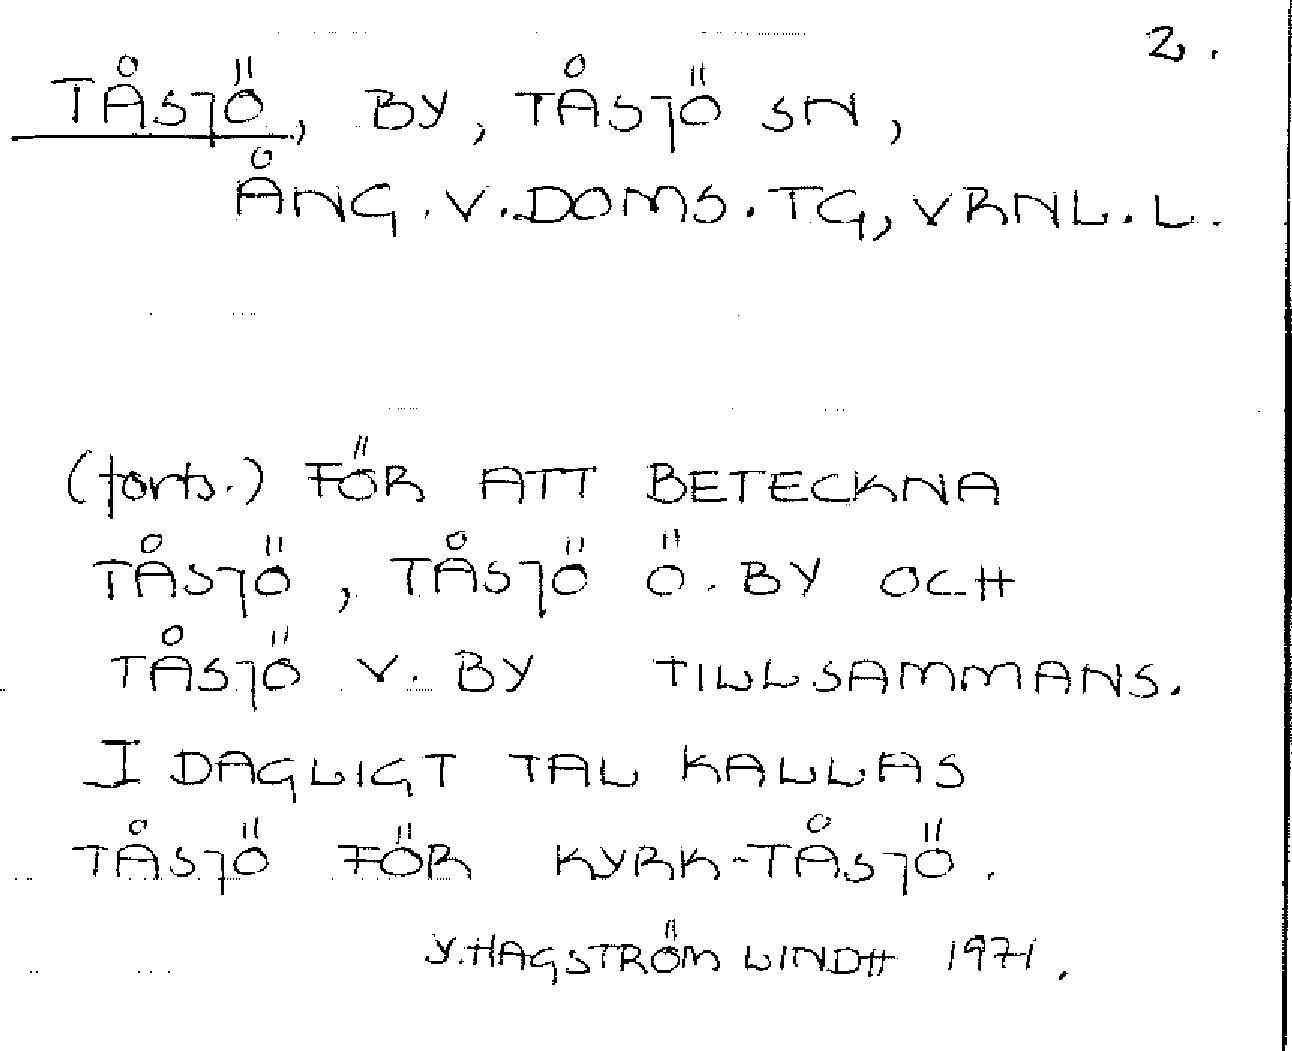 2.
TÅSJÖ, BY, TÅSJÖ SN,
ÅNG. V. DOMS. TG, VRNL. L.
(forts.) FÖR ATT BETECKNA
TÅSJÖ, TÅSJÖ Ö. BY OCH
TÅSJÖ V. BY TILLSAMMANS.
I DAGLIGT TAL KALLAS
TÅSJÖ FÖR KYRK-TÅSJÖ.
Y. HAGSTRÖM LINDH 1971.